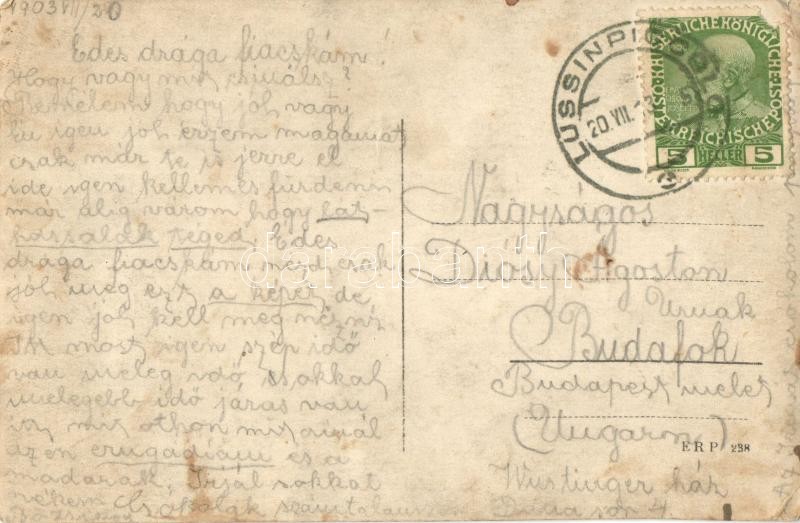 1903 VII/20
Édes drága fiacskám!
Hogy vagy mit csinálsz?
Remélem hogy jól vagy
én igen jól érzem magamat
csak már te is jerre el
ide igen kellemes fürdeni
már alig várom hogy lát-
hassalak téged. Édes
drága fiacskám nézd csak
jól meg ezt a képet de
igen jól kell meg nézni
Itt most igen szép idő
van meleg idő sokkal
melegebb idő járás van
itt mit othon mit csinál
azén és a
madarak. Irjál sokkat
nékem Csókollak számtalanszor
LUSSINPICCOLO
20.VII.
KAISERLICHE KÖNIGLICHE
ÖSTERREICHISCHE POST
5 HELLER 5
Nagyságos
Diósy Agoston
Urnak
Budafok
Budapest melet
(Ungarn)
ERP 238
Wurtinger ház
Duna sor 4
darabanth.com